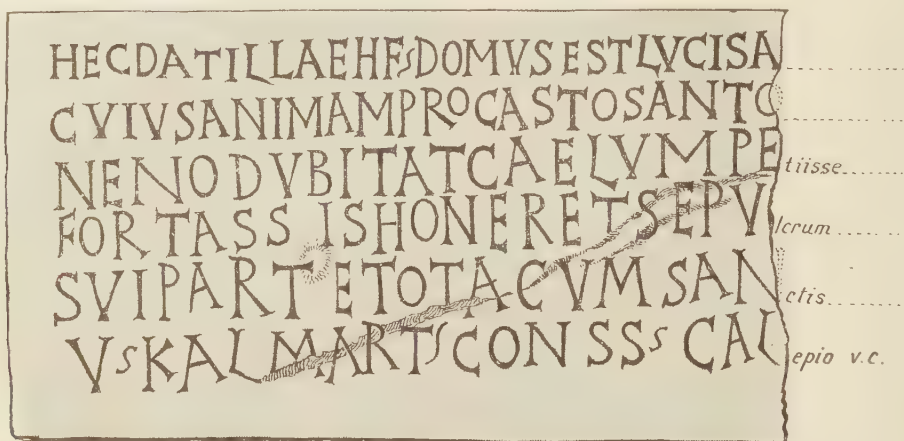 HECDATILLAEHFSDOMVSESTLVCISA
CVIVSANIMAMPROCASTOSANTC
NENODVBITATCAELVMPEtiisse
FORTASSISHONERETSEPVlcrum
SVIPARTETOTACVMSANctis
VSKALMARTSCONSSSSCALepio v.c.